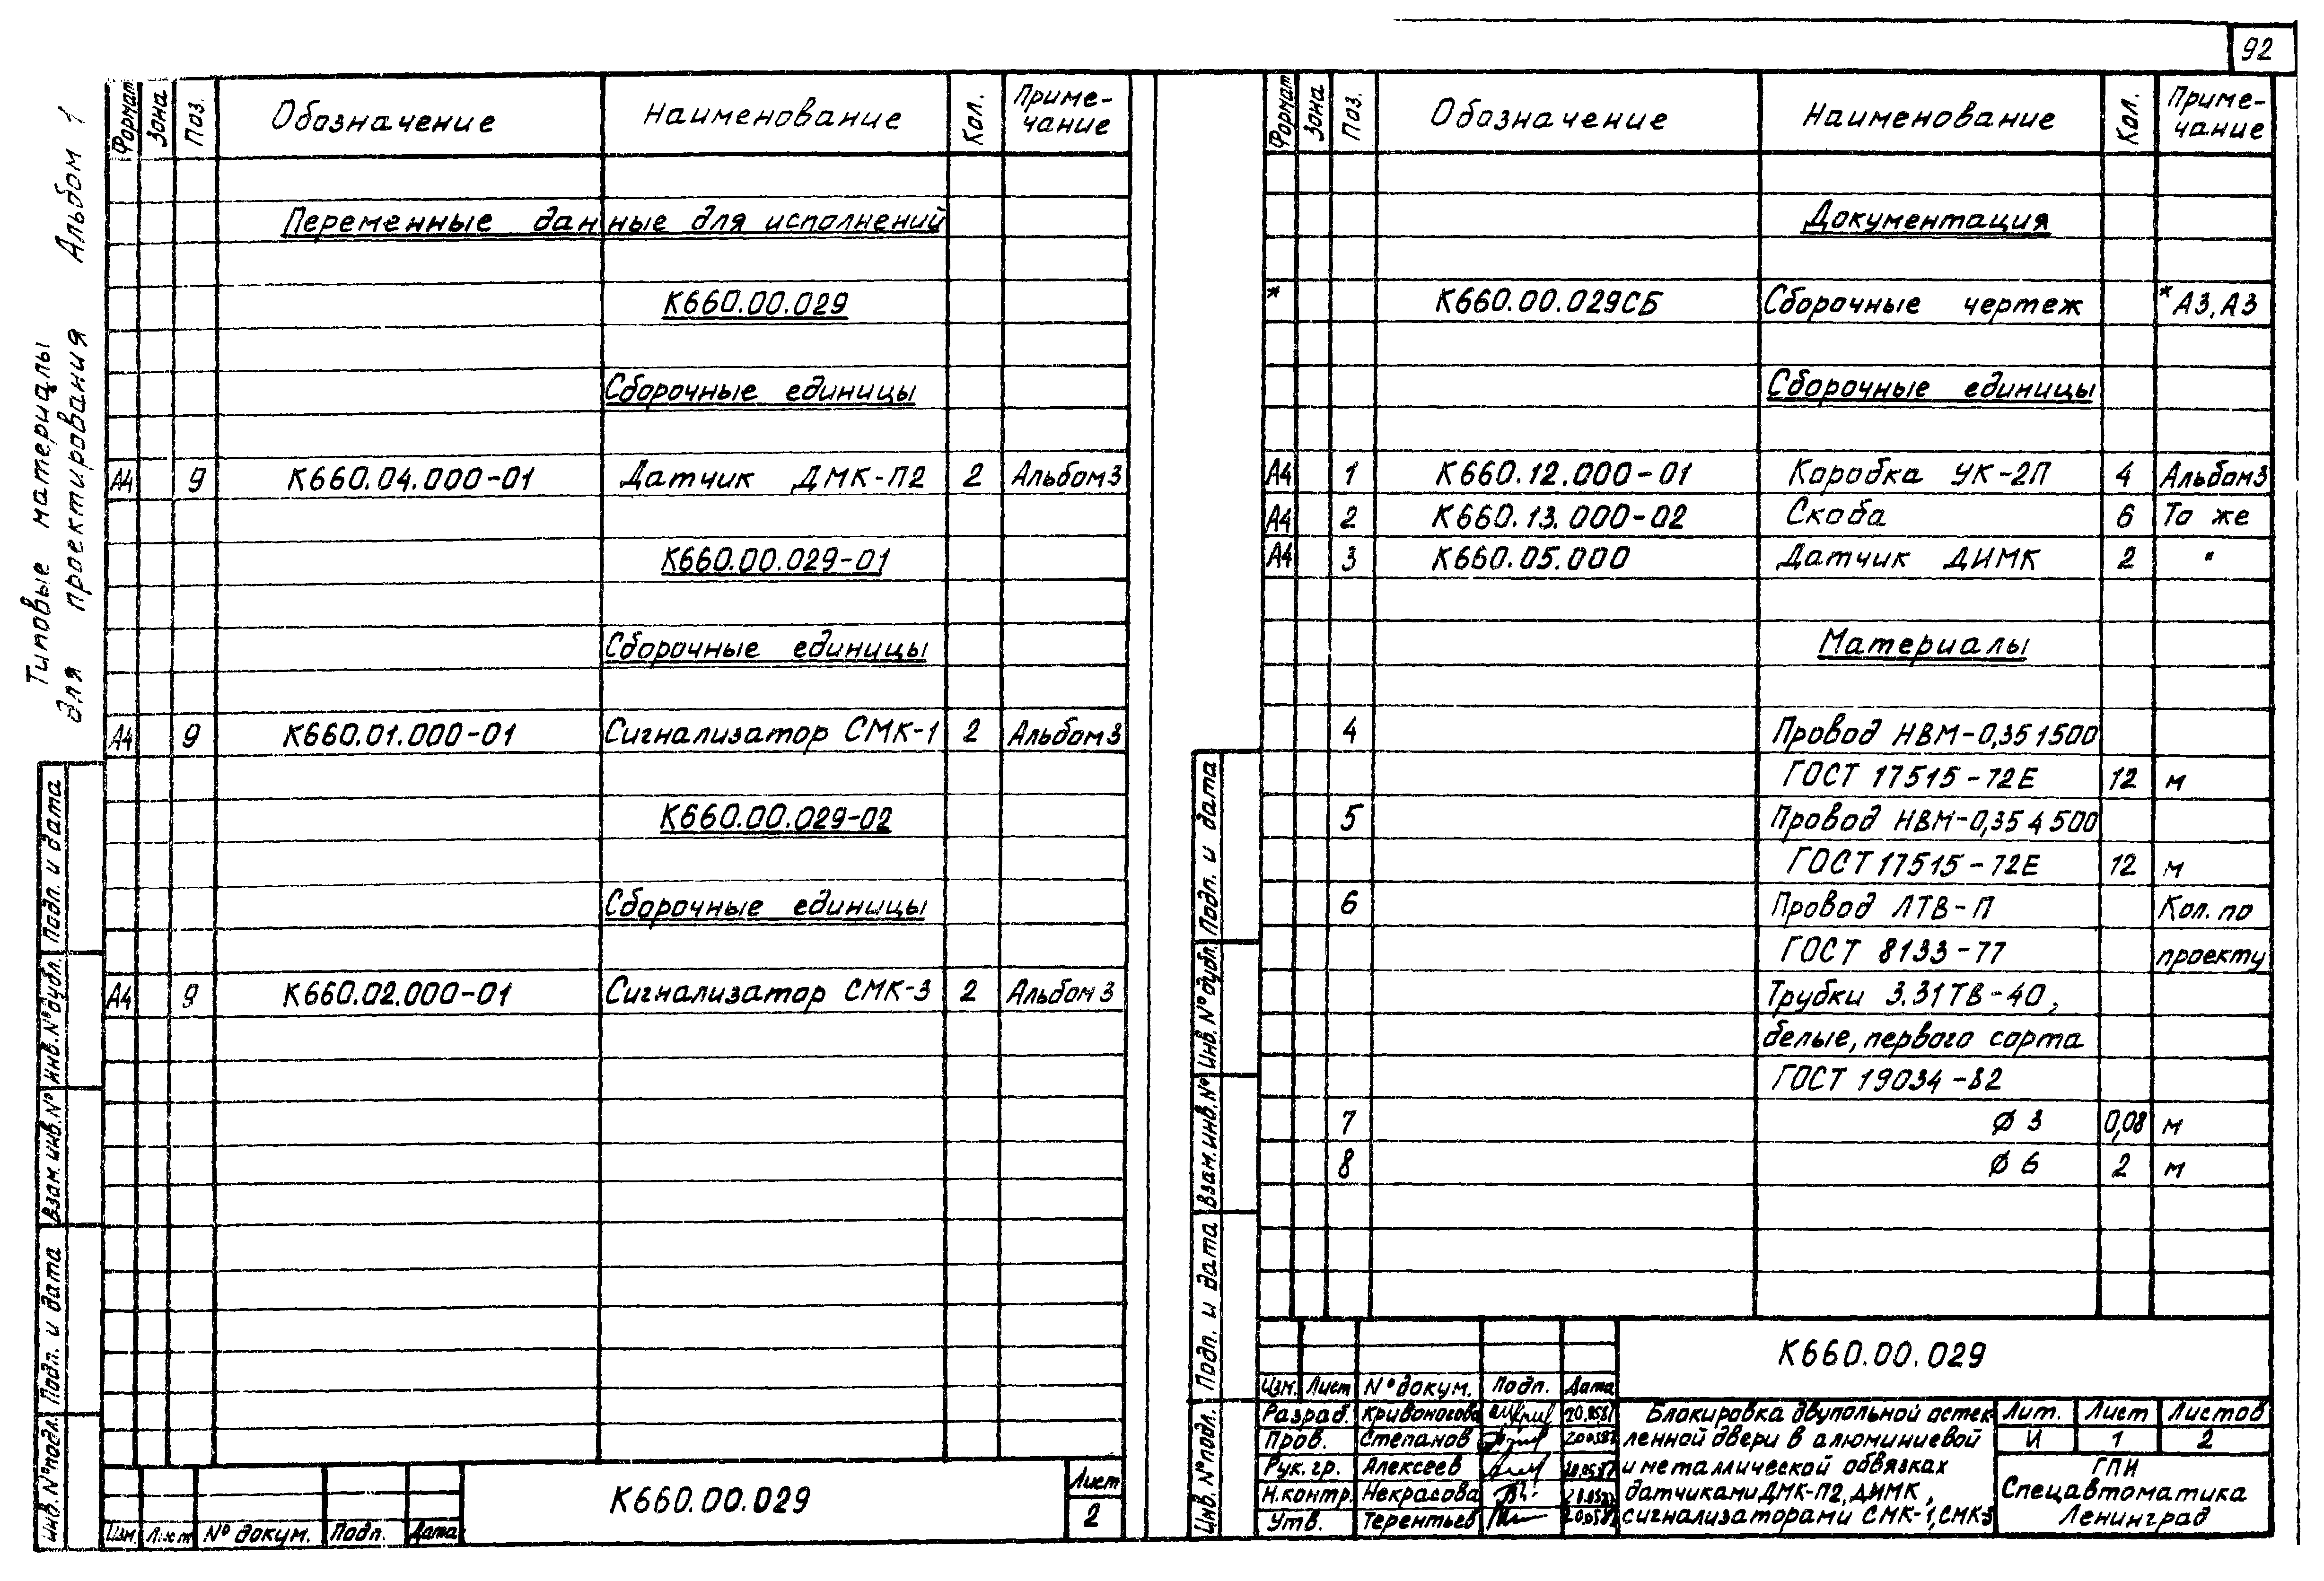 92
Типовые материалы
для проектирования Альбом 1
Формат Зона Поз. Обозначение Наименование Кол. Приме-
чание
Переменные данные для исполнений
К660.00.029
Сборочные единицы
А4 9 К660.04.000-01 Датчик ДМК-П2 2 Альбом3
К660.00.029-01
Сборочные единицы
А4 9 К660.01.000-01 Сигнализатор СМК-1 2 Альбом3
К660.00.029-02
Сборочные единицы
А4 9 К660.02.000-01 Сигнализатор СМК-3 2 Альбом3
Инв. № подл. Подп. и дата Взам. инв. № Инв. № дубл. Подп. и дата
Изм. Лист № докум. Подп. Дата
К660.00.029
Лист
2
Формат Зона Поз. Обозначение Наименование Кол. Приме-
чание
Документация
* К660.00.029СБ Сборочные чертеж * А3, А3
Сборочные единицы
А4 1 К660.12.000-01 Коробка УК-2П 4 Альбом3
А4 2 К660.13.000-02 Скоба 6 То же
А4 3 К660.05.000 Датчик ДИМК 2 "
Материалы
4 Провод НВМ-0,35 1 500
ГОСТ 17515-72Е 12 м
5 Провод НВМ-0,35 4 500
ГОСТ 17515-72Е 12 м
6 Провод ЛТВ-П Кол. по
ГОСТ 8133-77 проекту
Трубки 3.31ТВ-40,
белые, первого сорта
ГОСТ 19034-82
7 Ø 3 0,08 м
8 Ø 6 2 м
Инв. № подл. Подп. и дата Взам. инв. № Инв. № дубл. Подп. и дата
К660.00.029
Изм. Лист № докум. Подп. Дата
Разраб. Кривоногова
Пров. Степанов
Рук. гр. Алексеев
Н.контр. Некрасова
Утв. Терентьев
Блокировка двупольной остек-
ленной двери в алюминиевой
и металлической обвязках
датчиками ДМК-П2, ДИМК,
сигнализаторами СМК-1, СМК-3
Лит. Лист Листов
И 1 2
ГПИ
Спецавтоматика
Ленинград